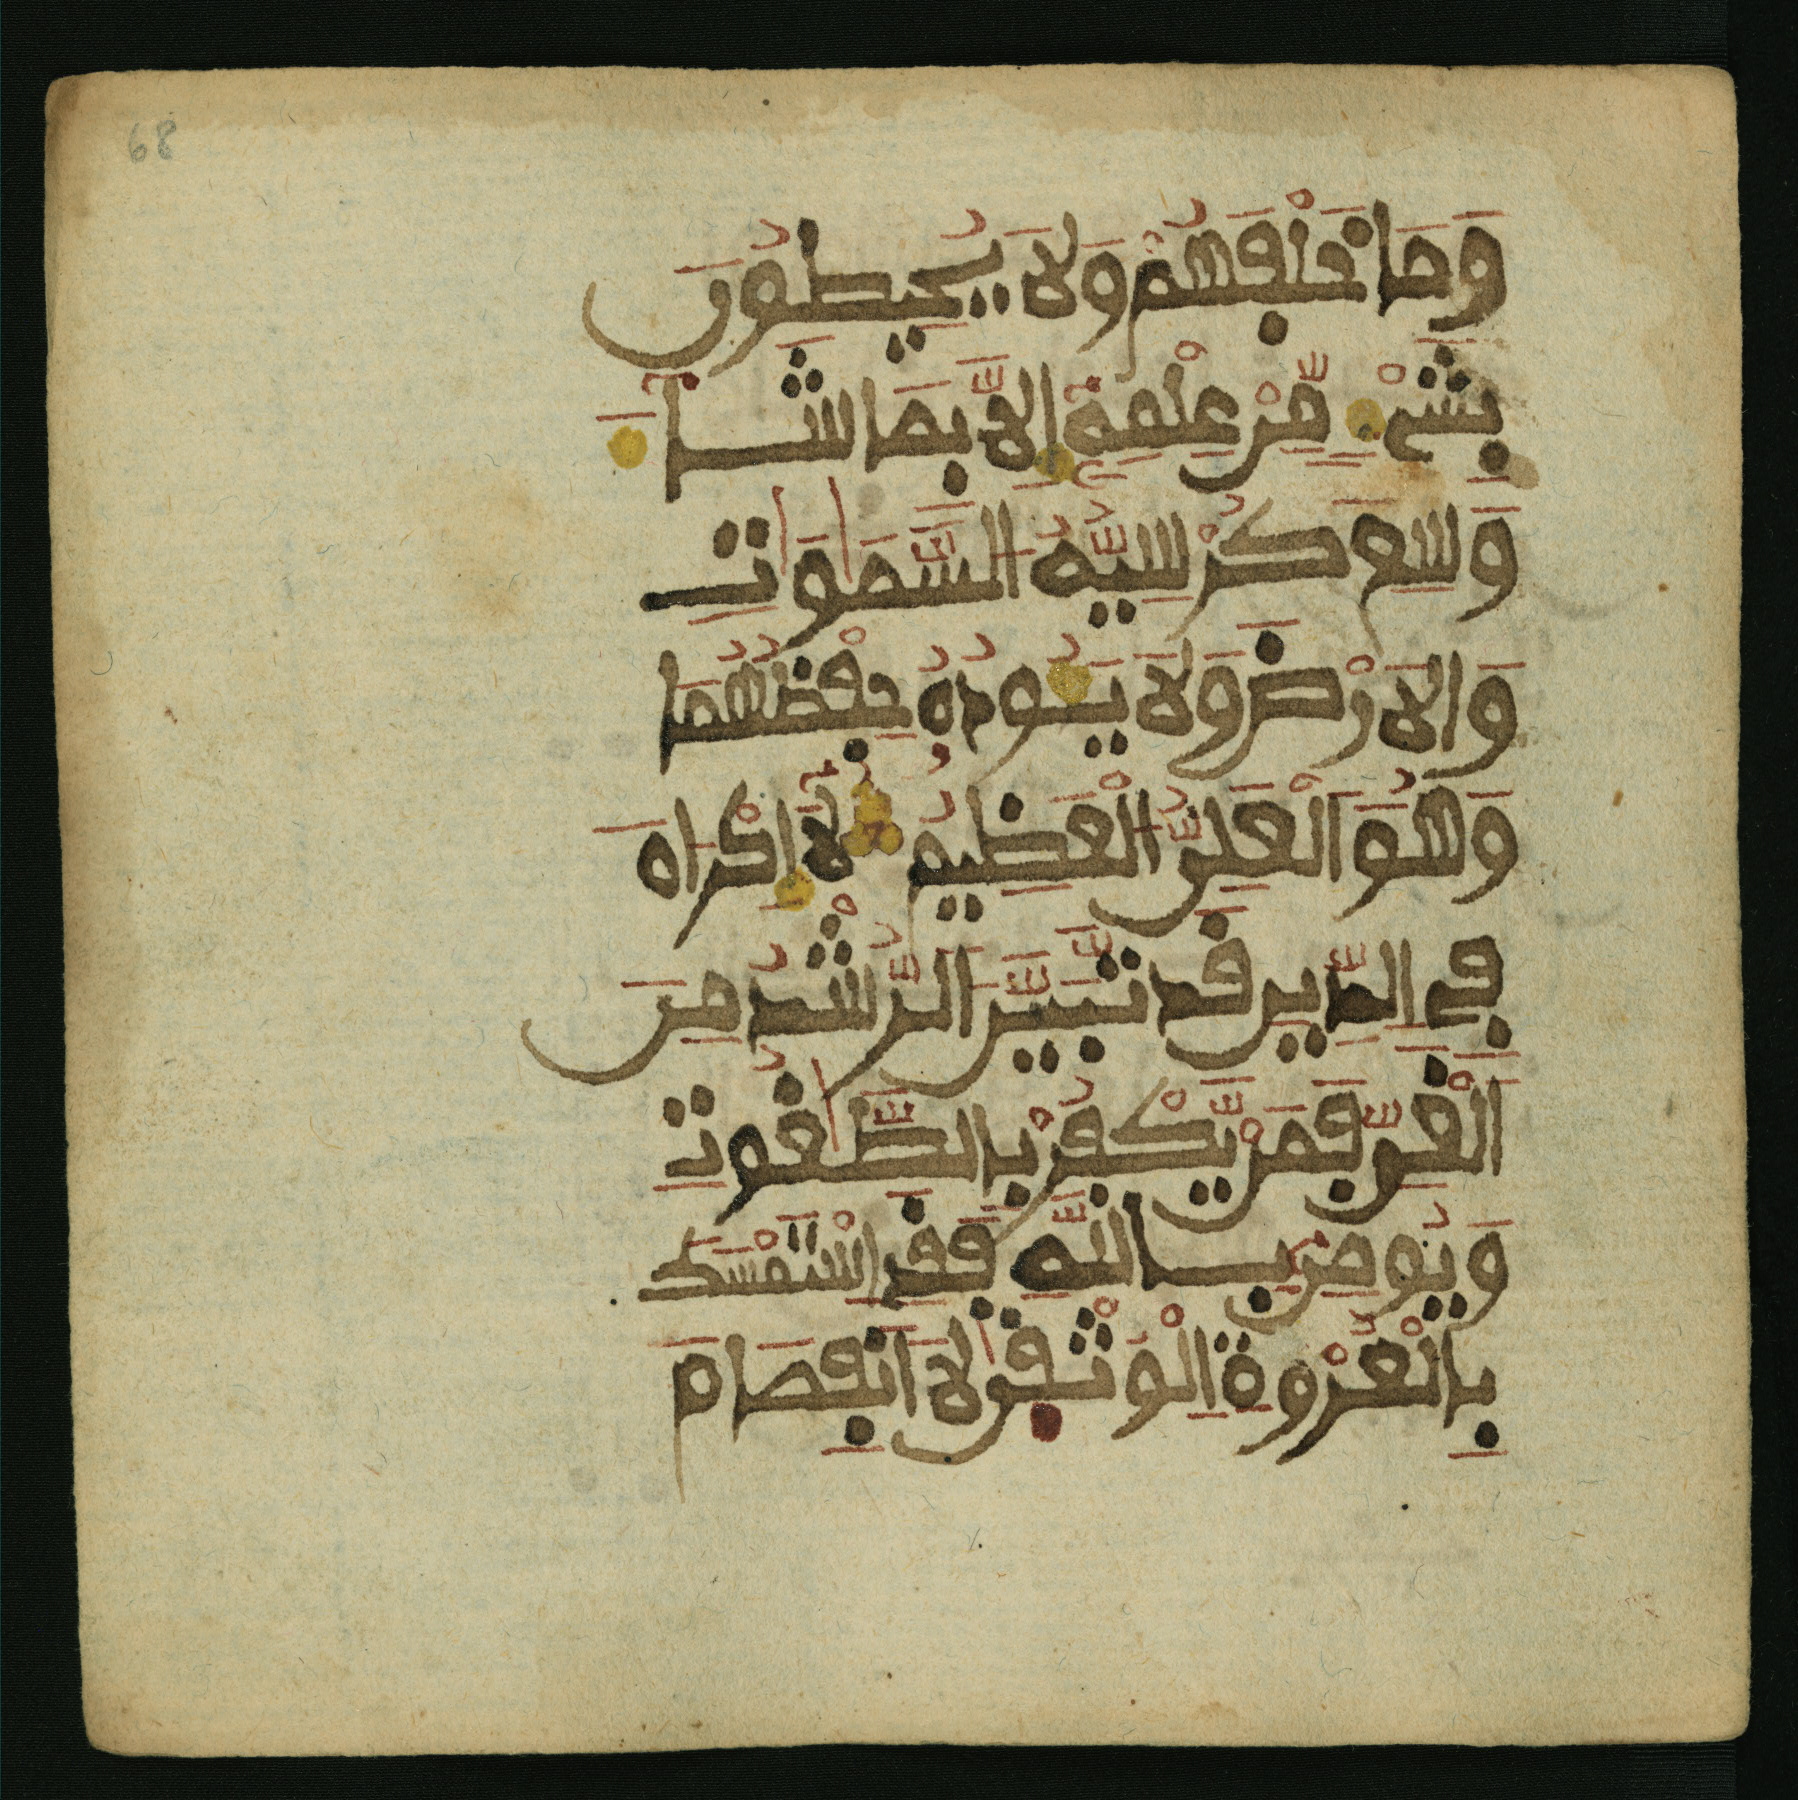 68
وَمَا خَلْفَهُمْ وَلَا يُحِيطُونَ
بِشَيْءٍ مِّنْ عِلْمِهِ إِلَّا بِمَا شَاءَ
وَسِعَ كُرْسِيُّهُ السَّمَٰوَٰتِ
وَالَارْضَ وَلَا يَـُٔودُهُ حِفْظُهُمَا
وَهُوَ الْعَلِيُّ الْعَظِيمُ لَا إِكْرَاهَ
فِي الدِّينِ قَد تَّبَيَّنَ الرُّشْدُ مِنَ
الْغَيِّ فَمَنْ يَّكْفُرْ بِالطَّٰغُوتِ
وَيُومِنْ بِاللَّهِ فَقَدِ اسْتَمْسَكَ
بِالْعُرْوَةِ الْوُثْقَىٰ لَا انفِصَامَ